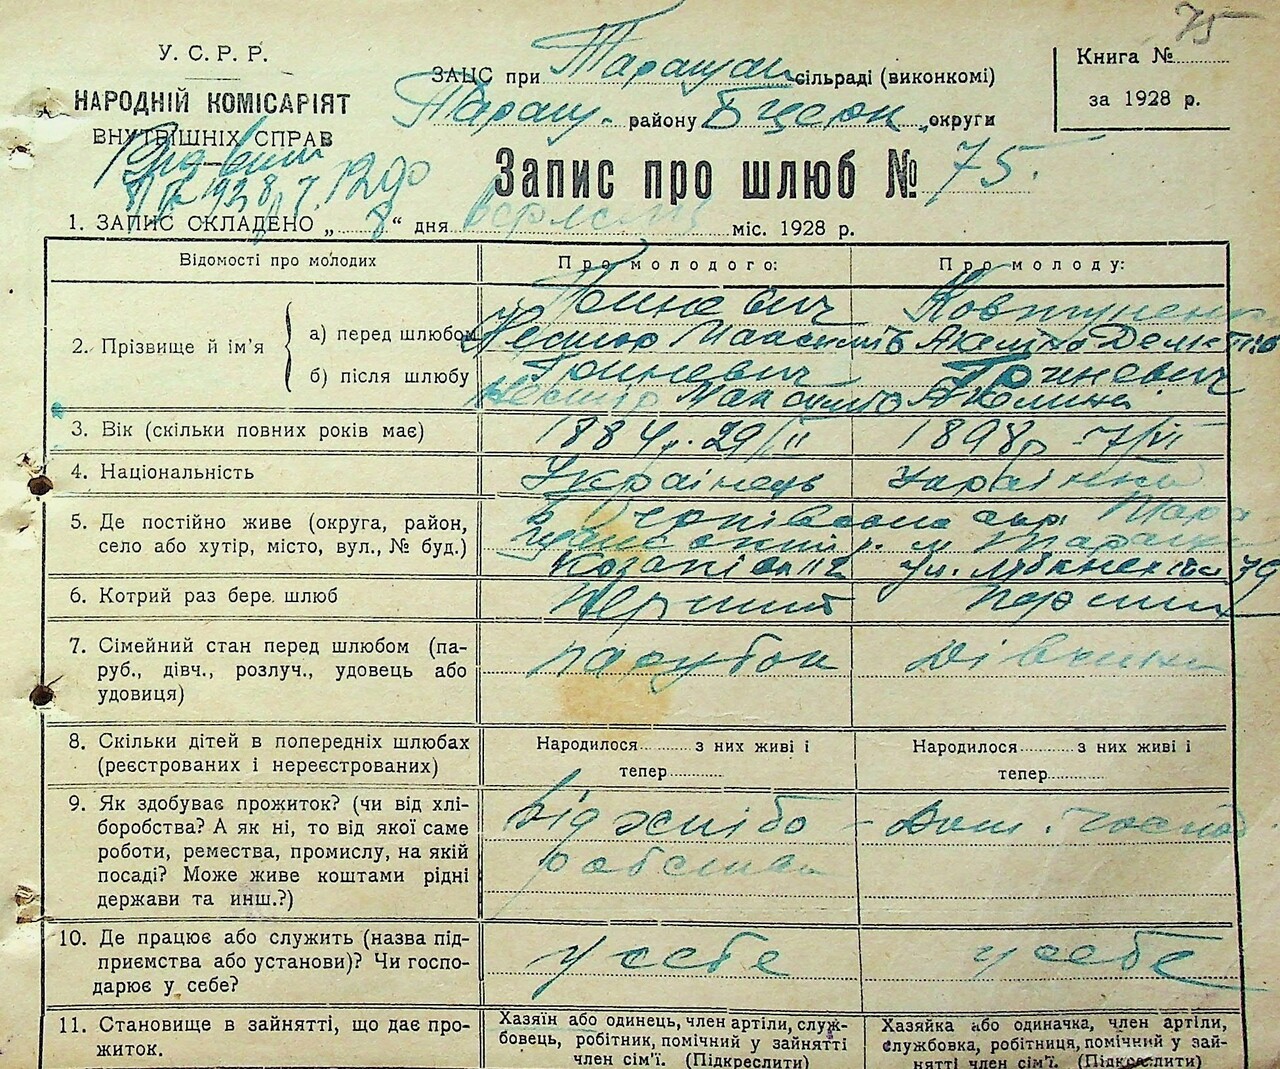 75
У. С. Р. Р.
НАРОДНІЙ КОМІСАРІЯТ
ВНУТРІШНІХ СПРАВ
ЗАЦС при Таращан сільраді (виконкомі)
Таращ. району Б Церк. округи
Книга №
за 1928 р.
Запис про шлюб № 75.
1. ЗАПИС СКЛАДЕНО „ 8 “ дня вересня міс. 1928 р.
Відомості про молодих
Про молодого:
Про молоду:
2. Прізвище й ім'я
а) перед шлюбом
Гриневич
Нестор Максимів
Ковтуненко
Акелина
б) після шлюбу
Гриневич
Нестор Максимів
Гриневич
Акелина
3. Вік (скільки повних років має)
1884 р. 29/II
1898 р. 7/VI
4. Національність
Українець
Українка
5. Де постійно живе (округа, район,
село або хутір, місто, вул., № буд.)
6. Котрий раз бере шлюб
Перший
перший
7. Сімейний стан перед шлюбом (па-
руб., дівч., розлуч., удовець або
удовиця)
парубок
дівчина
8. Скільки дітей в попередніх шлюбах
(реєстрованих і нереєстрованих)
Народилося з них живі і
тепер
Народилося з них живі і
тепер
9. Як здобуває прожиток? (чи від хлі-
боробства? А як ні, то від якої саме
роботи, ремества, промислу, на якій
посаді? Може живе коштами рідні
держави та инш.?)
Від хлібо-
робства
Дом. господ.
10. Де працює або служить (назва під-
приємства або установи)? Чи госпо-
дарює у себе?
у себе
у себе
11. Становище в зайнятті, що дає про-
житок.
Хазяїн або одинець, член артілі, служ-
бовець, робітник, помічний у зайнятті
член сім'ї. (Підкреслити)
Хазяйка або одиначка, член артіли,
службовка, робітниця, помічний у зай-
нятті член сім'ї. (Підкреслити)